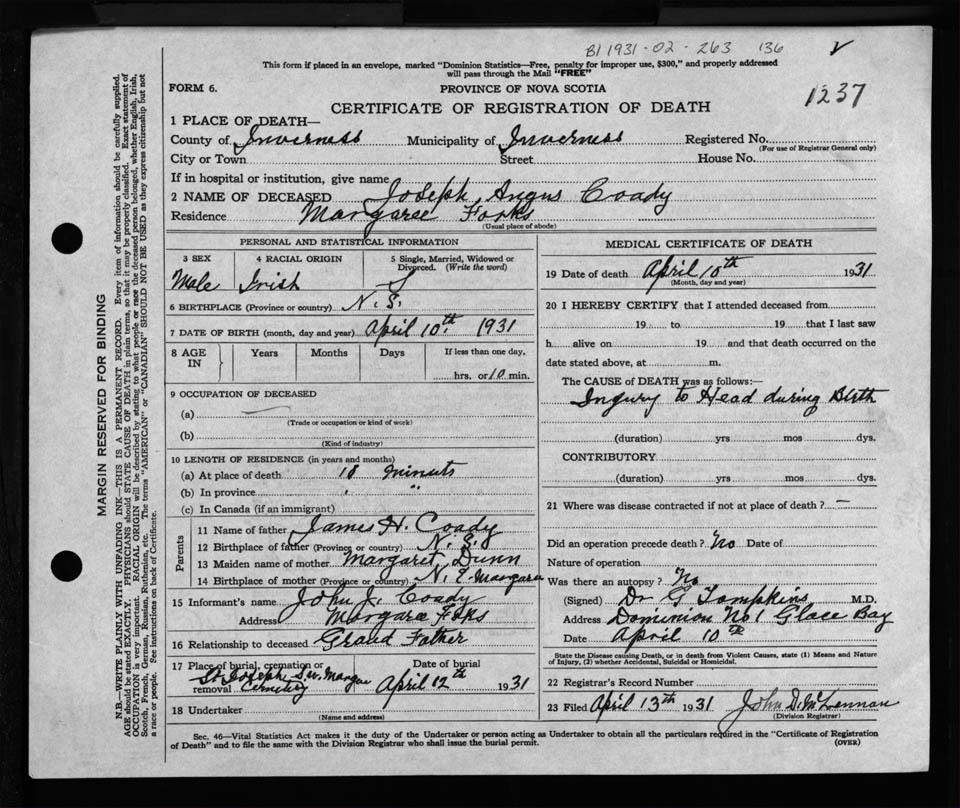 B1 1931-02-263 136
V
1237
This form if placed in an envelope, marked "Dominion Statistics—Free, penalty for improper use, $300," and properly addressed
will pass through the Mail "FREE"
FORM 6.
PROVINCE OF NOVA SCOTIA
CERTIFICATE OF REGISTRATION OF DEATH
1 PLACE OF DEATH—
County of Inverness Municipality of Inverness Registered No.
(For use of Registrar General only)
City or Town Street House No.
If in hospital or institution, give name
2 NAME OF DECEASED Joseph Angus Coady
Residence Margaree Forks
(Usual place of abode)
PERSONAL AND STATISTICAL INFORMATION
3 SEX 4 RACIAL ORIGIN 5 Single, Married, Widowed or Divorced. (Write the word)
Male Irish S
6 BIRTHPLACE (Province or country) N.S.
7 DATE OF BIRTH (month, day and year) April 10th 1931
8 AGE IN Years Months Days If less than one day,
hrs. or 10 min.
9 OCCUPATION OF DECEASED
(a)
(Trade or occupation or kind of work)
(b)
(Kind of industry)
10 LENGTH OF RESIDENCE (in years and months)
(a) At place of death 10 minuts
(b) In province " "
(c) In Canada (if an immigrant)
Parents
11 Name of father James H. Coady
12 Birthplace of father (Province or country) N.S.
13 Maiden name of mother Margaret Dunn
14 Birthplace of mother (Province or country) N.S. Margaree
15 Informant's name John J. Coady
Address Margaree Foks
16 Relationship to deceased Grand Father
17 Place of burial, cremation or removal St Joseph S.W. Margaree Cemetery
Date of burial April 12th 1931
18 Undertaker
(Name and address)
MEDICAL CERTIFICATE OF DEATH
19 Date of death April 10th 1931
(Month, day and year)
20 I HEREBY CERTIFY that I attended deceased from
19 to 19 that I last saw
h alive on 19 and that death occurred on the
date stated above, at m.
The CAUSE OF DEATH was as follows:—
Ingury to Head during Birth
(duration) yrs mos dys.
CONTRIBUTORY
(duration) yrs mos dys.
21 Where was disease contracted if not at place of death? —
Did an operation precede death? No Date of
Nature of operation
Was there an autopsy? No
(Signed) Dr G Tompkins M.D.
Address Dominion No 1 Glace Bay
Date April 10th
State the Disease causing Death, or in death from Violent Causes, state (1) Means and Nature
of Injury, (2) whether Accidental, Suicidal or Homicidal.
22 Registrar's Record Number
23 Filed April 13th 1931 John D. McLennan
(Division Registrar)
Sec. 46—Vital Statistics Act makes it the duty of the Undertaker or person acting as Undertaker to obtain all the particulars required in the "Certificate of Registration
of Death" and to file the same with the Division Registrar who shall issue the burial permit.
(OVER)
MARGIN RESERVED FOR BINDING
N.B.—WRITE PLAINLY WITH UNFADING INK—THIS IS A PERMANENT RECORD. Every item of information should be carefully supplied.
AGE should be stated EXACTLY. PHYSICIANS should STATE CAUSE OF DEATH in plain terms, so that it may be properly classified. Exact statement of
OCCUPATION is very important. RACIAL ORIGIN will be described by stating to what people or race the deceased person belonged, whether English, Irish,
Scotch, French, German, Russian, Ruthenian, etc. The terms "AMERICAN" or "CANADIAN" SHOULD NOT BE USED as they express citizenship but not
a race or people. See instructions on back of Certificate.